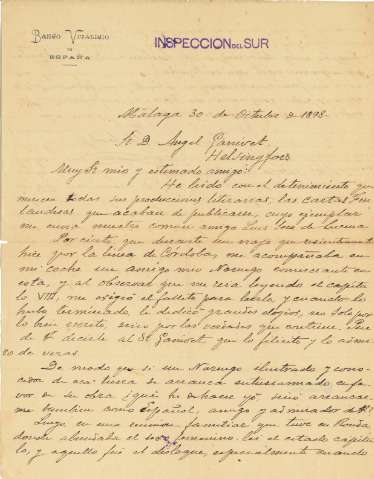 BANCO VITALICIO
DE
ESPAÑA
INSPECCION DEL SUR
Málaga 30 de Octubre de 1898.
Sr. D. Angel Ganivet
Helsingfors
Muy Sr mio y estimado amigo:
He leido con el detenimiento que
merecen todas sus producciones literarias, las cartas Fin-
landesas que acaban de publicarse, cuyo ejemplar
me envia nuestro comun amigo Luis
Por cierto, que durante un viaje que recientemente
hice por la linea de Córdoba, me acompañaba en
mi coche un amigo mio Noruego comerciante en
esta, y al observar que me reia leyendo el capitu-
lo VIII, me exigió el folleto para leerlo, y cuando lo
hubo terminado, le dedicó grandes elogios, no solo por
lo bien escrito, sino por las verdades que contiene.
V. decirle al Sr Ganivet que lo felicito y lo admi-
ro de veras.
De modo que si un Noruego ilustrado y cono-
cedor de esa tierra se arranca entusiasmado en fa-
vor de su obra ¿qué he de hacer yo sinó arrancar-
me tambien como Español, amigo y admirador de V?
Luego en una reunion familiar que tuve en Ronda
donde abundaba el sexo femenino leí el citado capitu-
lo, y aquello fué el disloque, especialmente cuando